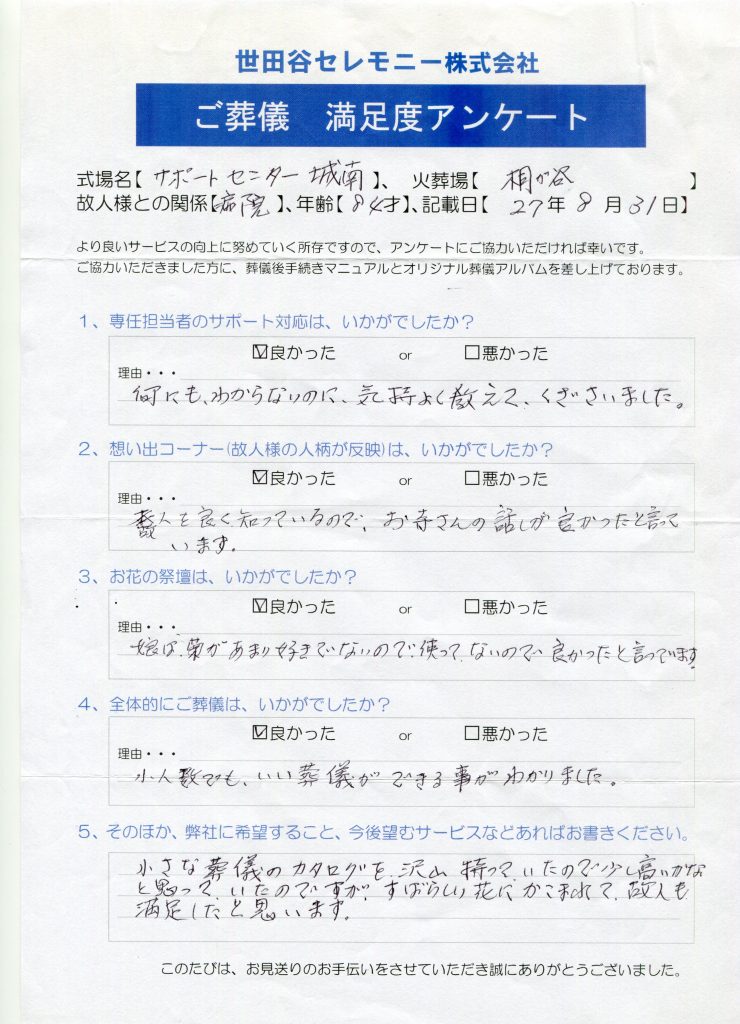 世田谷セレモニー株式会社
ご葬儀　満足度アンケート
式場名【 サポートセンター城南 】、 火葬場【 桐が谷 】
故人様との関係【病院】、年齢【84才】、記載日【 27年 8月31日】
より良いサービスの向上に努めていく所存ですので、アンケートにご協力いただければ幸いです。
ご協力いただきました方に、葬儀後手続きマニュアルとオリジナル葬儀アルバムを差し上げております。
1、専任担当者のサポート対応は、いかがでしたか？
☑良かった or □悪かった
理由・・・
何にも、わからないのに、気持よく教えて、くださいました。
2、想い出コーナー(故人様の人柄が反映)は、いかがでしたか？
☑良かった or □悪かった
理由・・・
故人を良く知っているので、お寺さんの話しが良かったと言って
います。
3、お花の祭壇は、いかがでしたか？
☑良かった or □悪かった
理由・・・
娘は、菊があまり好きでないので、使って、ないので、良かったと言っています
4、全体的にご葬儀は、いかがでしたか？
☑良かった or □悪かった
理由・・・
小人数でも、いい葬儀ができる事がわかりました。
5、そのほか、弊社に希望すること、今後望むサービスなどあればお書きください。
小さな葬儀のカタログを、沢山持って、いたので少し高いかな
と思って、いたのですが、すばらしい花にかこまれて、故人も
満足したと思います。
このたびは、お見送りのお手伝いをさせていただき誠にありがとうございました。